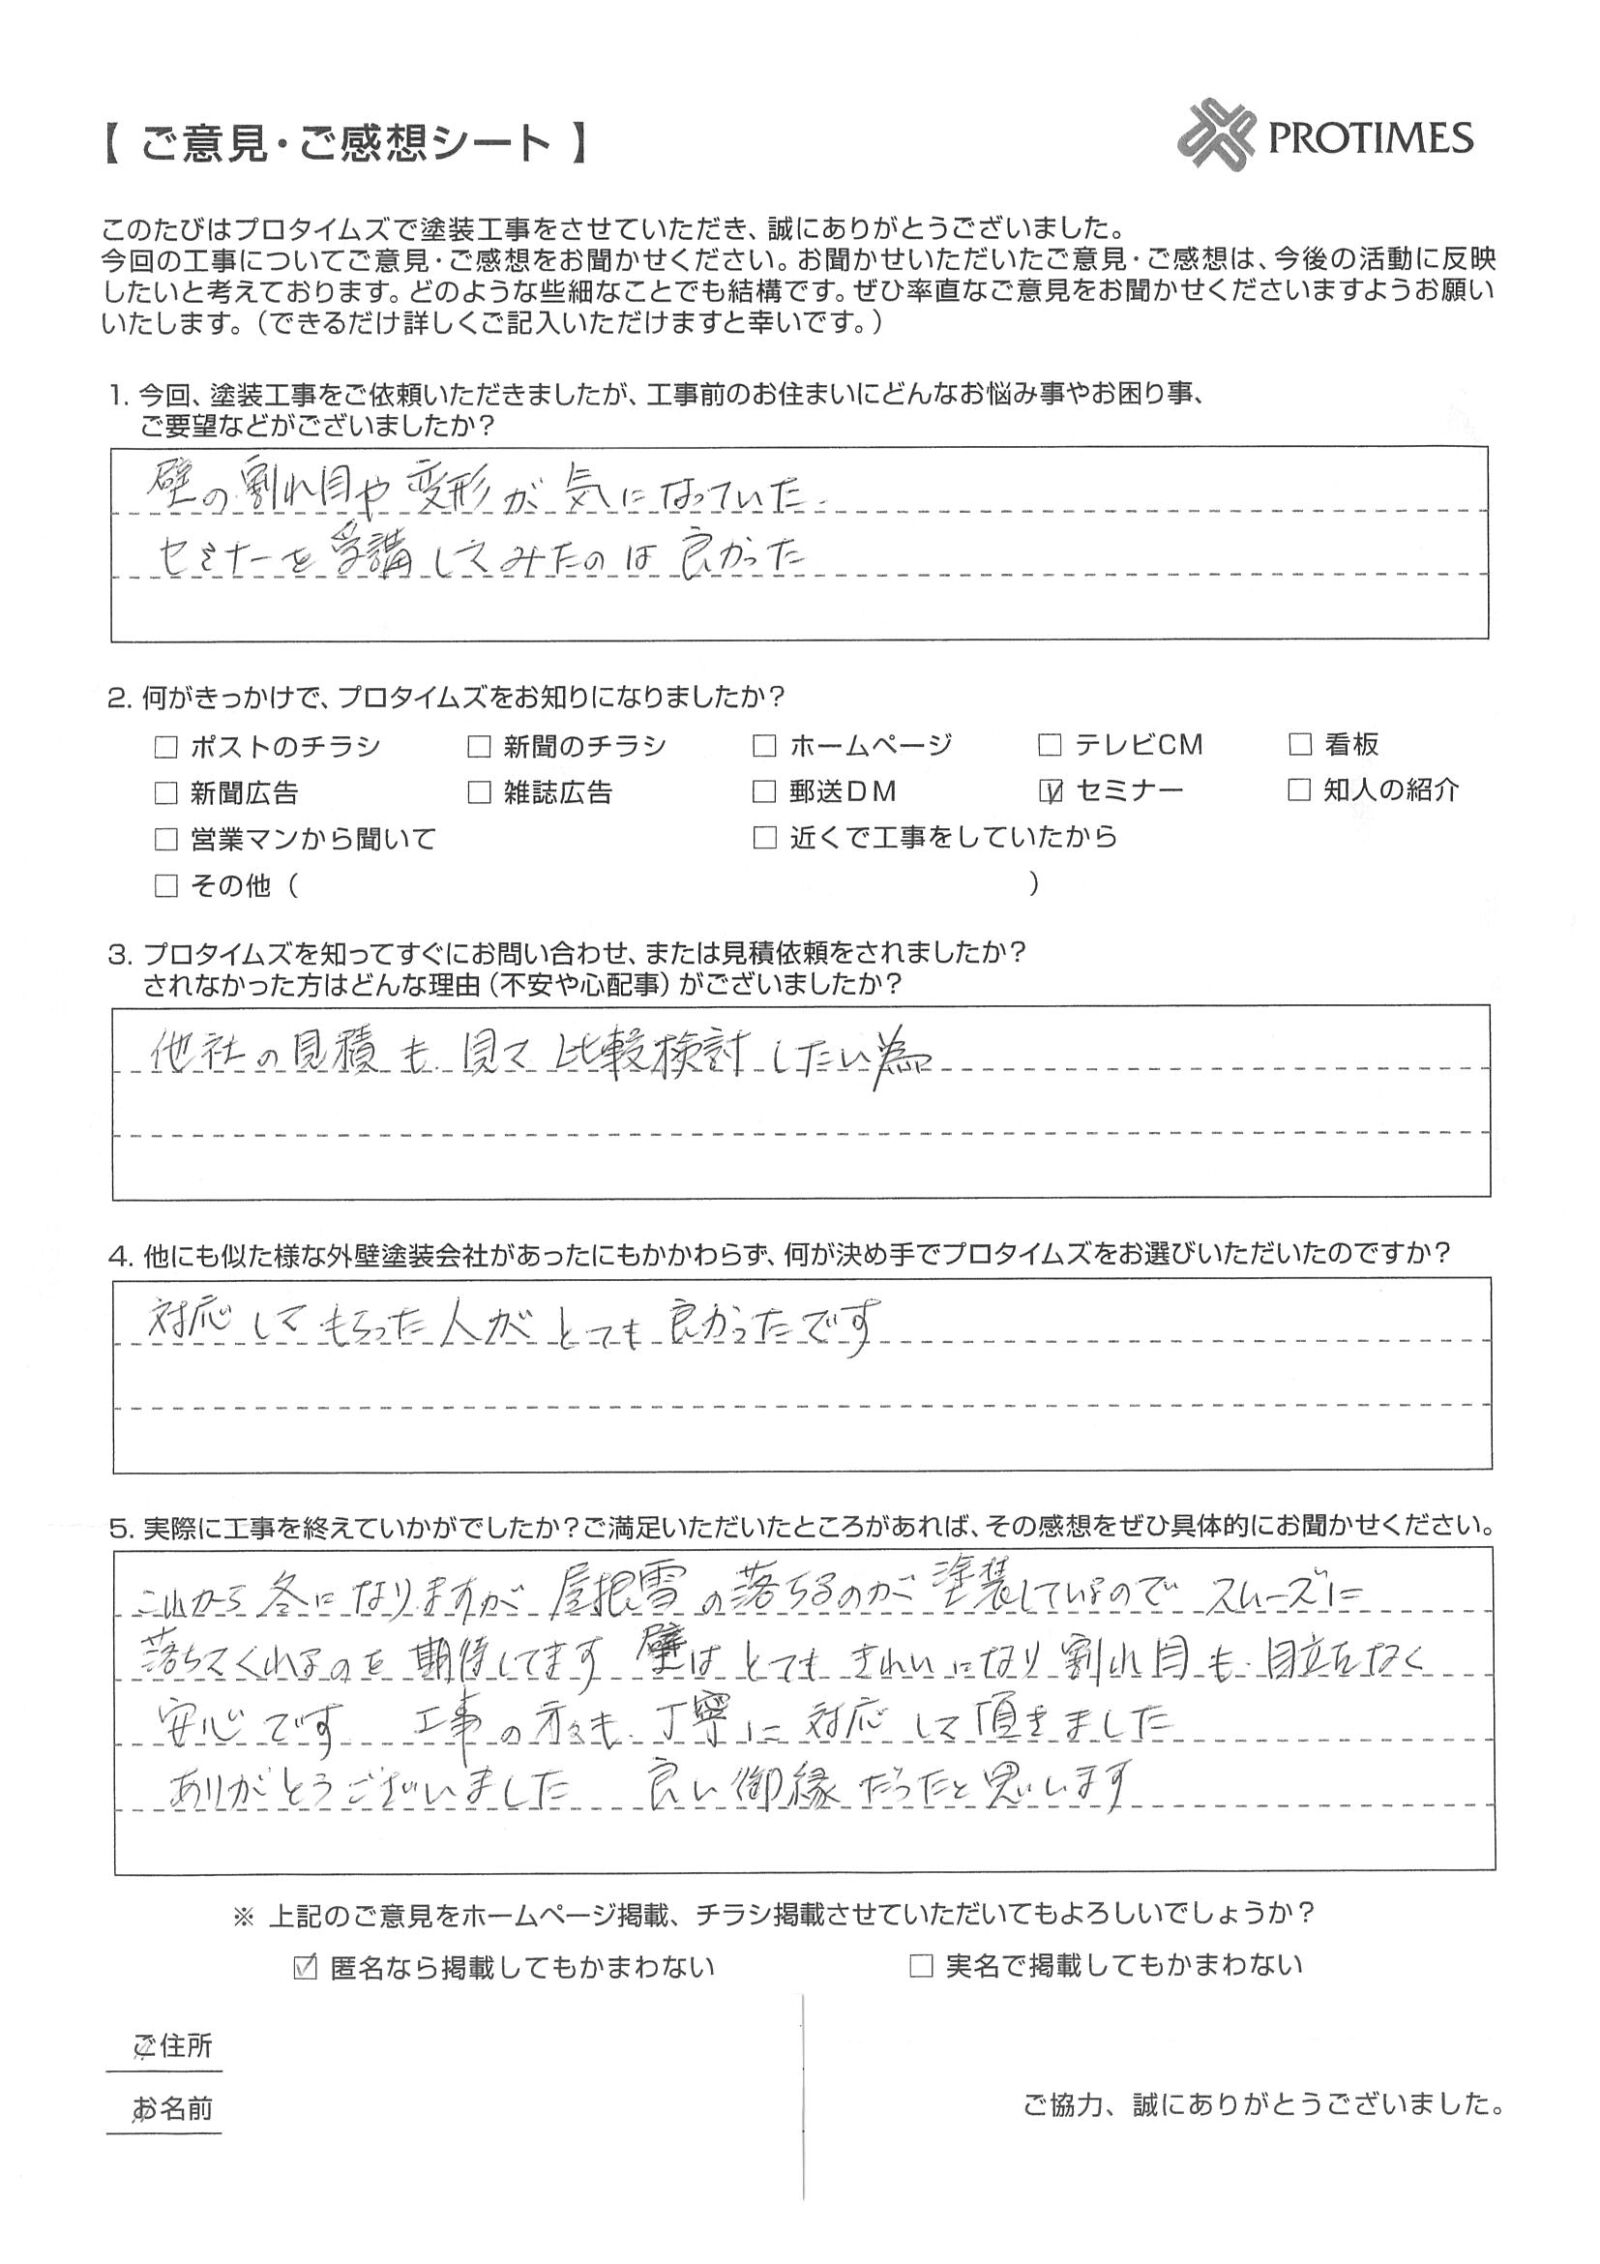 【 ご意見・ご感想シート 】
PROTIMES
このたびはプロタイムズで塗装工事をさせていただき、誠にありがとうございました。
今回の工事についてご意見・ご感想をお聞かせください。お聞かせいただいたご意見・ご感想は、今後の活動に反映
したいと考えております。どのような些細なことでも結構です。ぜひ率直なご意見をお聞かせくださいますようお願い
いたします。（できるだけ詳しくご記入いただけますと幸いです。）
1. 今回、塗装工事をご依頼いただきましたが、工事前のお住まいにどんなお悩み事やお困り事、
ご要望などがございましたか？
壁の割れ目や変形が気になっていた.
セミナーを受講してみたのは良かった
2. 何がきっかけで、プロタイムズをお知りになりましたか？
□ ポストのチラシ □ 新聞のチラシ □ ホームページ □ テレビCM □ 看板
□ 新聞広告 □ 雑誌広告 □ 郵送DM ☑ セミナー □ 知人の紹介
□ 営業マンから聞いて □ 近くで工事をしていたから
□ その他（ ）
3. プロタイムズを知ってすぐにお問い合わせ、または見積依頼をされましたか？
されなかった方はどんな理由（不安や心配事）がございましたか？
他社の見積も見て比較検討したい為
4. 他にも似た様な外壁塗装会社があったにもかかわらず、何が決め手でプロタイムズをお選びいただいたのですか？
対応してもらった人がとても良かったです
5. 実際に工事を終えていかがでしたか？ご満足いただいたところがあれば、その感想をぜひ具体的にお聞かせください。
これから冬になりますが屋根雪の落ちるのが塗装しているのでスムーズに
落ちてくれるのを期待してます 壁はとてもきれいになり割れ目も目立たなく
安心です 工事の方々も丁寧に対応して頂きました
ありがとうございました 良い御縁だったと思います
※ 上記のご意見をホームページ掲載、チラシ掲載させていただいてもよろしいでしょうか？
☑ 匿名なら掲載してもかまわない □ 実名で掲載してもかまわない
ご住所
お名前
ご協力、誠にありがとうございました。